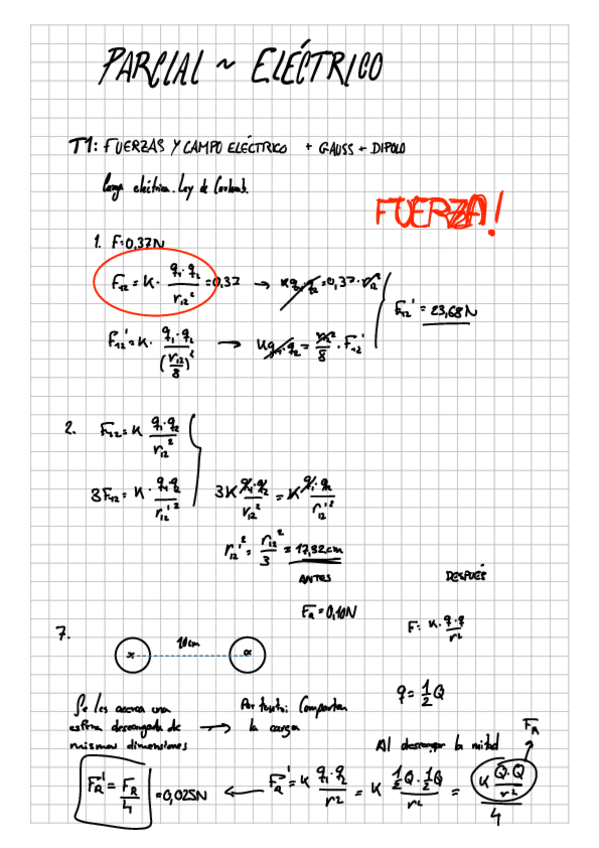 PARCIAL ~ ELÉCTRICO
T1: FUERZAS Y CAMPO ELÉCTRICO + GAUSS + DIPOLO
Carga eléctrica. Ley de Coulomb.
FUERZA!
1. F=0,37N
F₁₂ = K · q₁·q₂ / r₁₂² = 0,37 → K q₁·q₂ = 0,37 · r₁₂²
F₁₂' = 23,68N
F₁₂' = K · q₁·q₂ / (r₁₂/8)² → K q₁·q₂ = r₁₂²/8 · F₁₂'
2. F₁₂ = K q₁·q₂ / r₁₂²
3F₁₂ = K · q₁·q₂ / r₁₂'² 3K q₁·q₂ / r₁₂² = K q₁·q₂ / r₁₂'²
r₁₂'² = r₁₂²/3 = 17,32cm
ANTES
DESPUÉS
7.
10cm
Fa = 0,10N
F: K·q·q / r²
q = 1/2 Q
Se les acerca una
esfera descargada de
mismas dimensiones
→ Por tanto: Comparten
la carga
Al descargar la mitad
F_R
F_R' = F_R / 4 = 0,025N ← F_R' = K q₁·q₂ / r² = K 1/2 Q · 1/2 Q / r² = K Q·Q / r² / 4